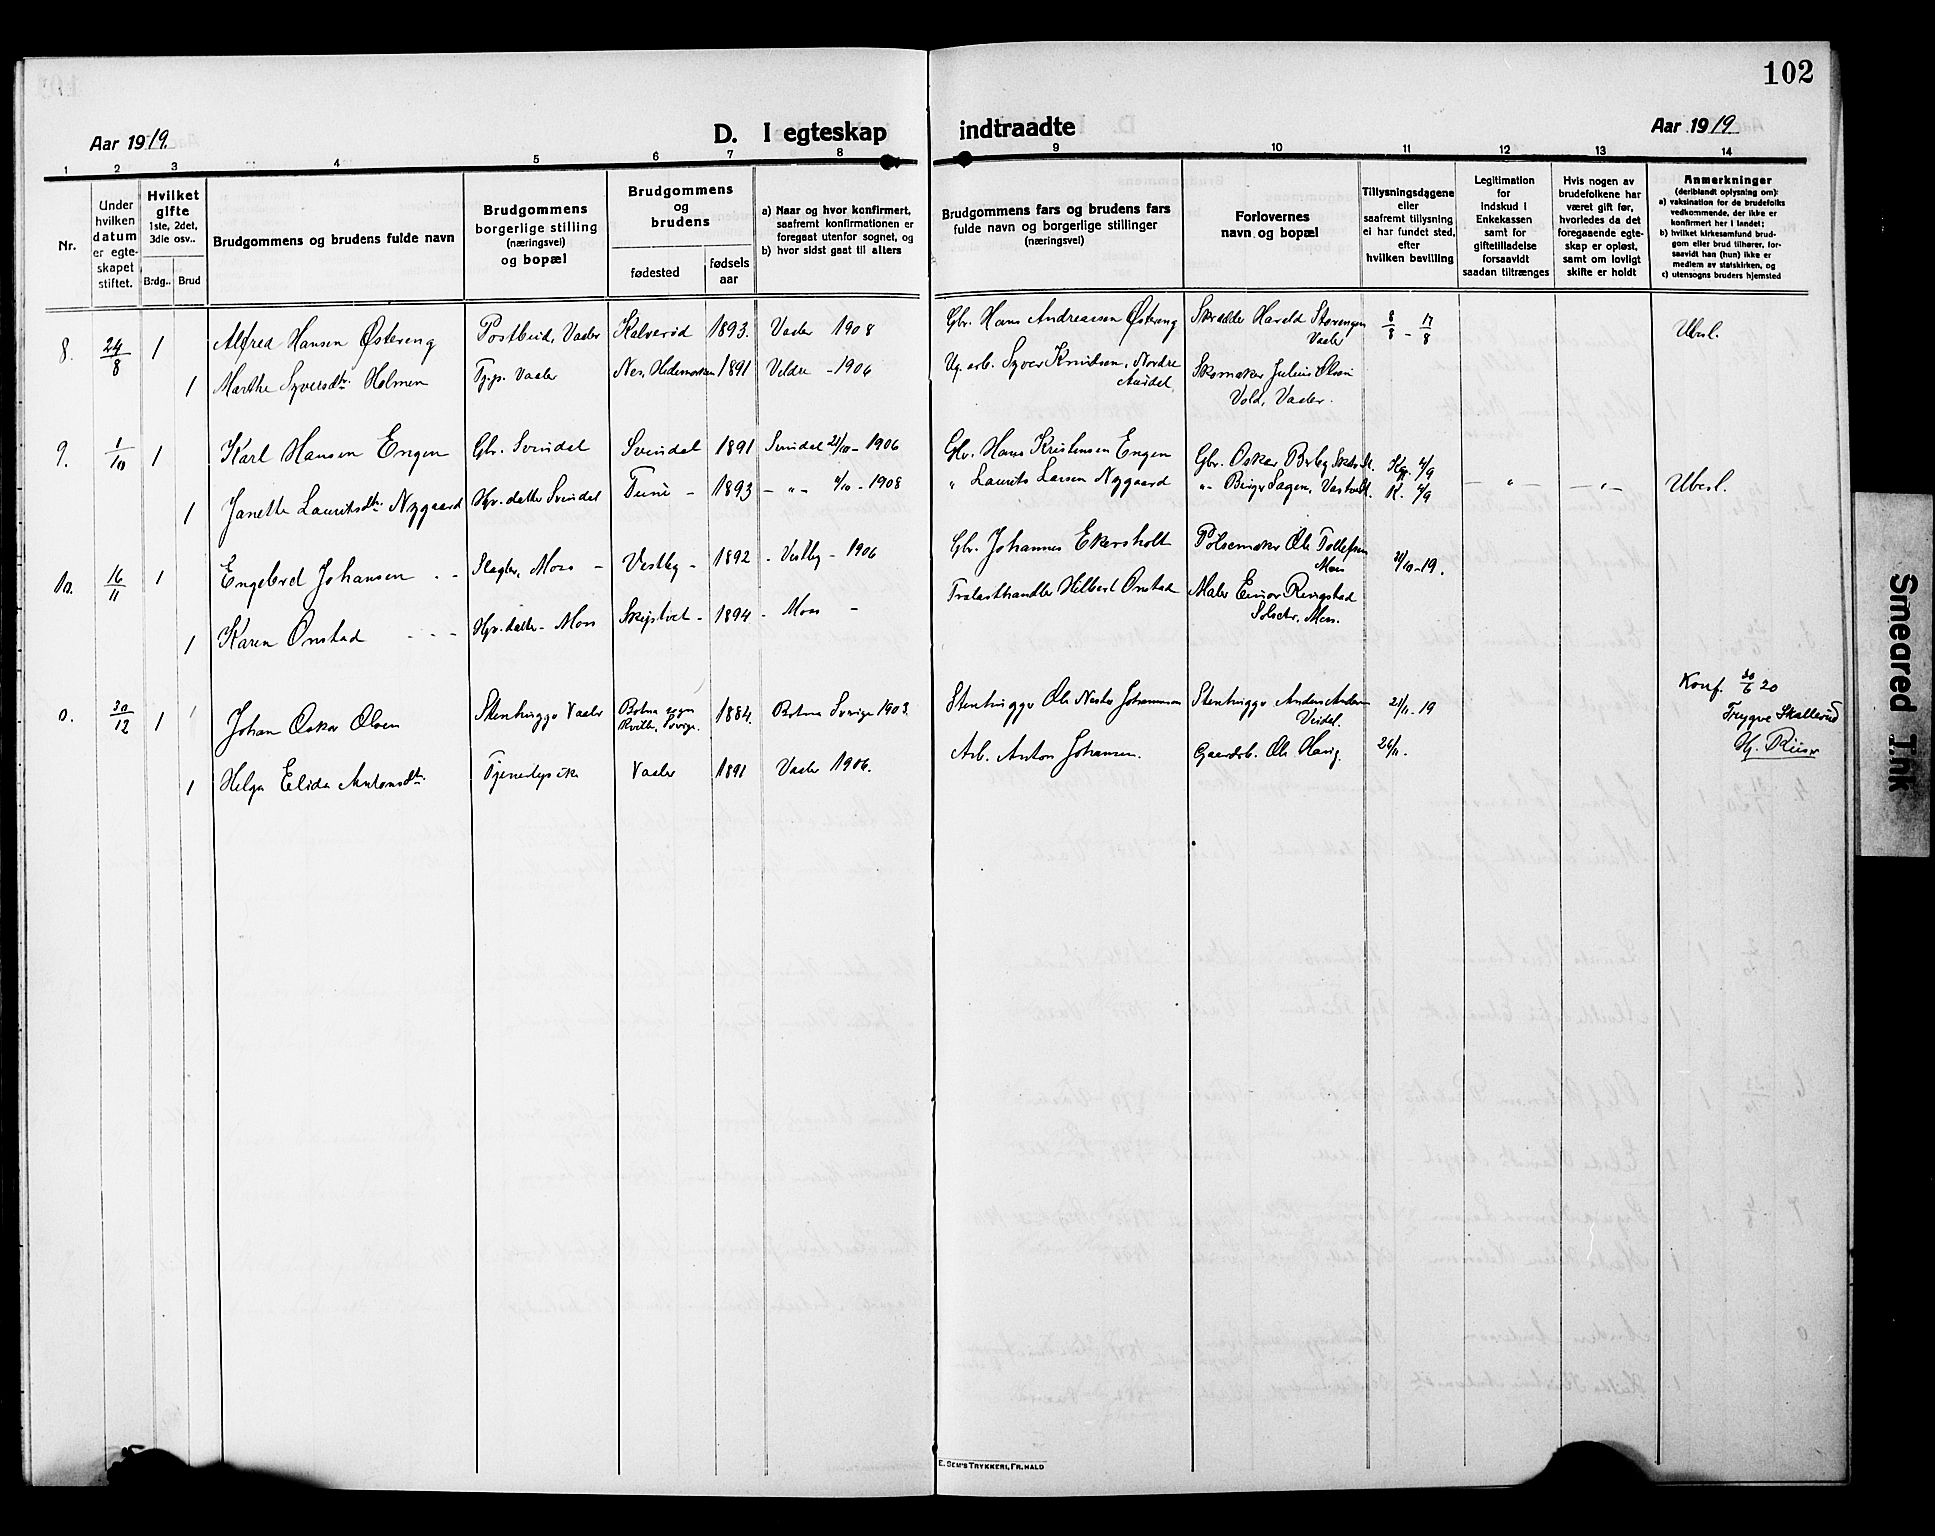 102
Aar 1919.
D. I egteskap indtraadte
Aar 1919
1 2 3 4 5 6 7 8 9 10 11 12 13 14
Nr.
Under hvilken datum er egte- skapet stiftet.
Hvilket gifte 1ste, 2det, 3die osv..
Brdg.. Brud
Brudgommens og brudens fulde navn
Brudgommens borgerlige stilling (næringsvei) og bopæl
Brudgommens og brudens
fødested
fødsels aar
a) Naar og hvor konfirmert, saafremt konfirmationen er foregaat utenfor sognet, og
b) hvor sidst gaat til alters
Brudgommens fars og brudens fars fulde navn og borgerlige stillinger (næringsvei)
Forlovernes navn og bopæl
Tillysningsdagene eller saafremt tillysning ei har fundet sted, efter hvilken bevilling
Legitimation for indskud i Enkekassen samt for giftetilladelse forsaavidt saadan tiltrænges
Hvis nogen av brudefolkene har været gift før, hvorledes da det foregaaende egte- skap er opløst, samt om lovligt skifte er holdt
Anmerkninger (deriblandt oplysning om):
a) vaksination for de brudefolks vedkommende, der ikke er konfirmert her i landet;
b) hvilket kirkesamfund brud- gom eller brud tilhører, for- saavidt han (hun) ikke er medlem av statskirken, og
c) utensogns bruders hjemsted
8. 24/8 1 Alfred Hansen Østereng Postbud, Vaaler Kalverød 1893. Vaaler 1908 Gbr. Hans Andreassen Østereng Skrædder Harald Storengen Vaaler 8/8 - 17/8 Ubesl.
1 Marthe Syversdtr. Holmen Tjp. Vaaler Nes, Hedemarken 1891 Veldre - 1906 Ug. arb. Syver Knudsen, Nordre Aurdal. Skomaker Julius Olsen Vold, Vaaler.
9. 1/10 1 Karl Hansen Engen Gbr. Svindal Svindal 1891 Svindal 21/10 - 1906 Gbr. Hans Kristensen Engen Gbr. Oskar Berby Kg. 4/9
1 Janette Lauritsdtr. Nygaard Hjv. datter Svindal Tune - 1893 - " - 4/10 - 1908 " Laurits Larsen Nygaard " - Birger Sagen, K. 4/9 - " - - " - Ubesl.
10. 16/11 1 Engebret Johansen - - Slagter, Moss - Vestby - 1892 - Vestby - 1906 Gbr. Johannes Ekersholt Pølsemaker Ole Tollefsen Moss 21/10 - 19.
1 Karen Onstad - - - Hjv. datter - Moss Skiptvet - 1894 - Moss - Trælasthandler Hilbert Onstad Maler Einar Ringstad Solectr. Moss.
0. 30/12 1 Johan Oskar Olsen Stenhugger Vaaler Botna sogn Kville, Sverige 1884. Botna Sverige 1903. Stenhugger Ole Nestor Johannsson Stenhugger Anders Anderson Veidal. 21/11 - 19 Konf. 30/6 20
Trygve Skallerud
Hj. Riiser
1 Helga Elida Antonsdtr. Tjenestepike Vaaler 1891 Vaaler 1906. Arb. Anton Johansen. Gaardsb. Ole Haug. 26/11.
E. SEM'S TRYKKERI, FR.HALD
Smeared Ink